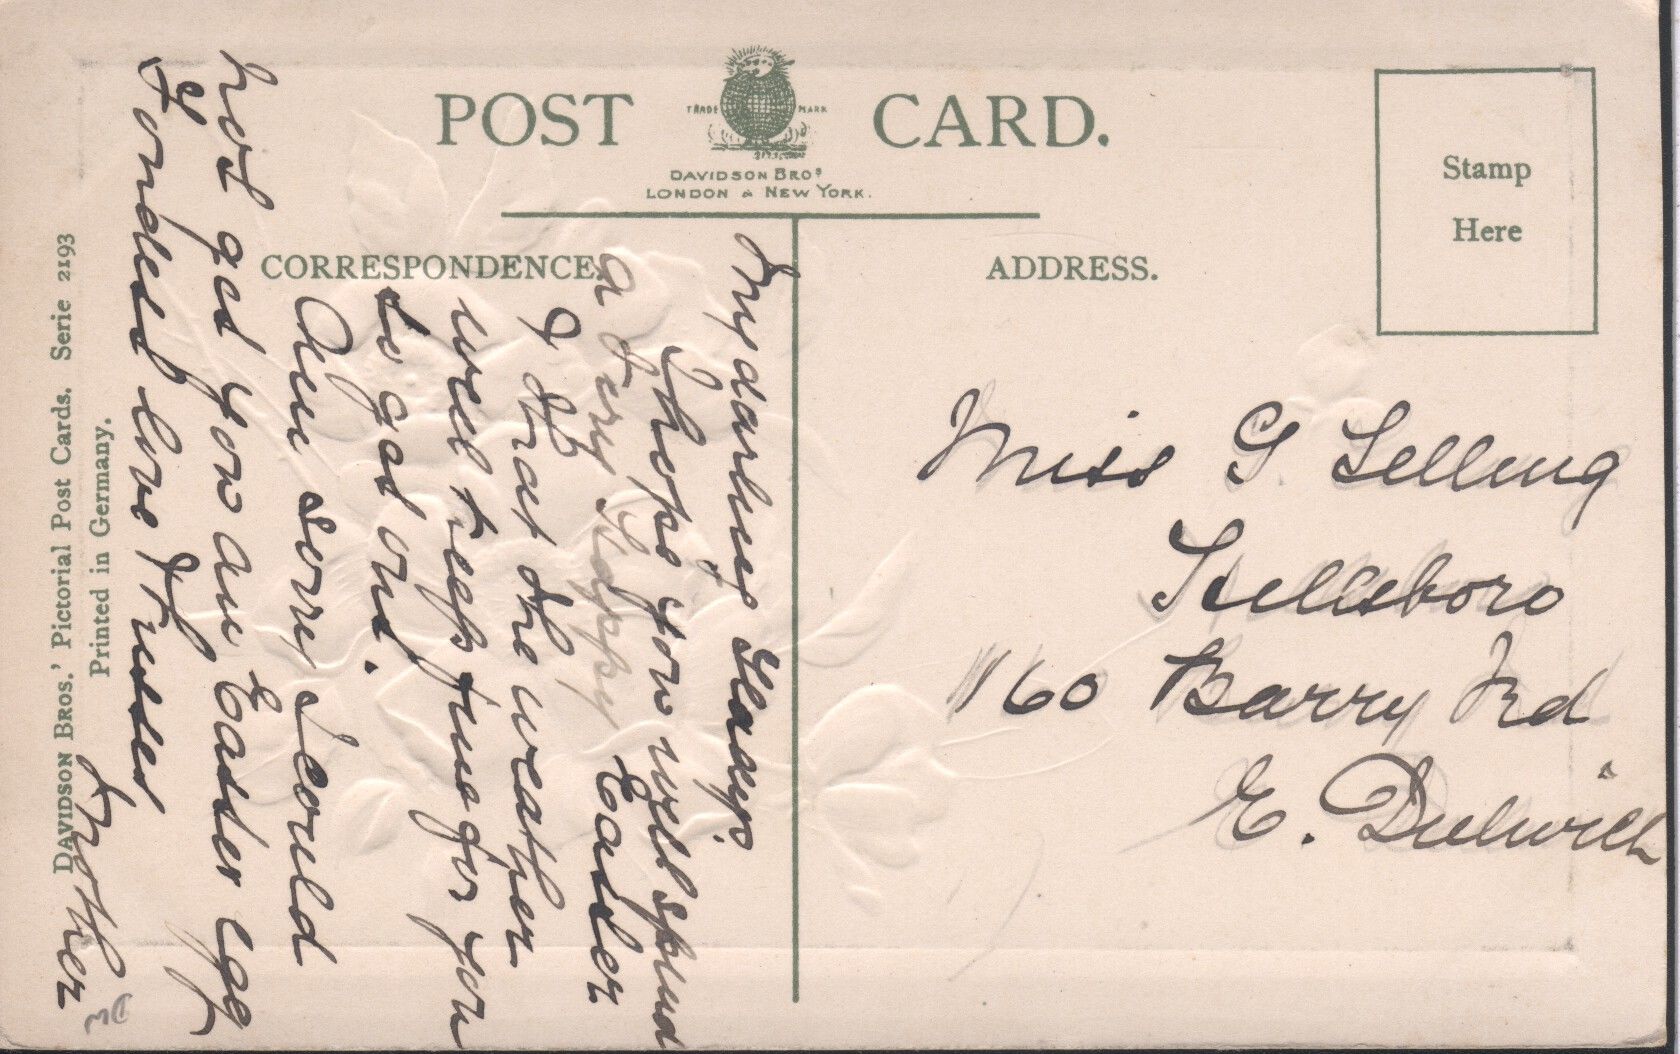 POST CARD.
TRADE MARK
DAVIDSON BROS
LONDON & NEW YORK.
CORRESPONDENCE.
ADDRESS.
Stamp
Here
My darling Gladys
I hope you will spend
a very Happy Easter
& that the weather
will keep fine for you
to get out.
Am sorry I could
not get you an Easter egg
Fondest love & kisses
Mother
Miss G Selling
boro
160 Barry Rd
E. Dulwich
DAVIDSON BROS.' Pictorial Post Cards. Serie 2193
Printed in Germany.